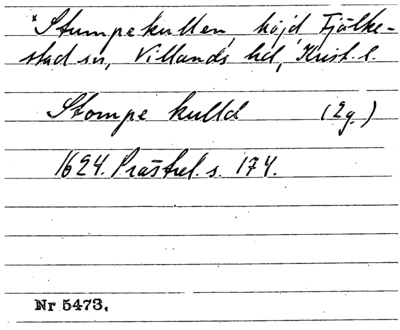 *Stumpekullen, höjd, Fjälke-
stad sn, Villands hd, Krist. l.
Stompe kulld (2g.)
1624. Prästrel. s. 174.
Nr 5473.